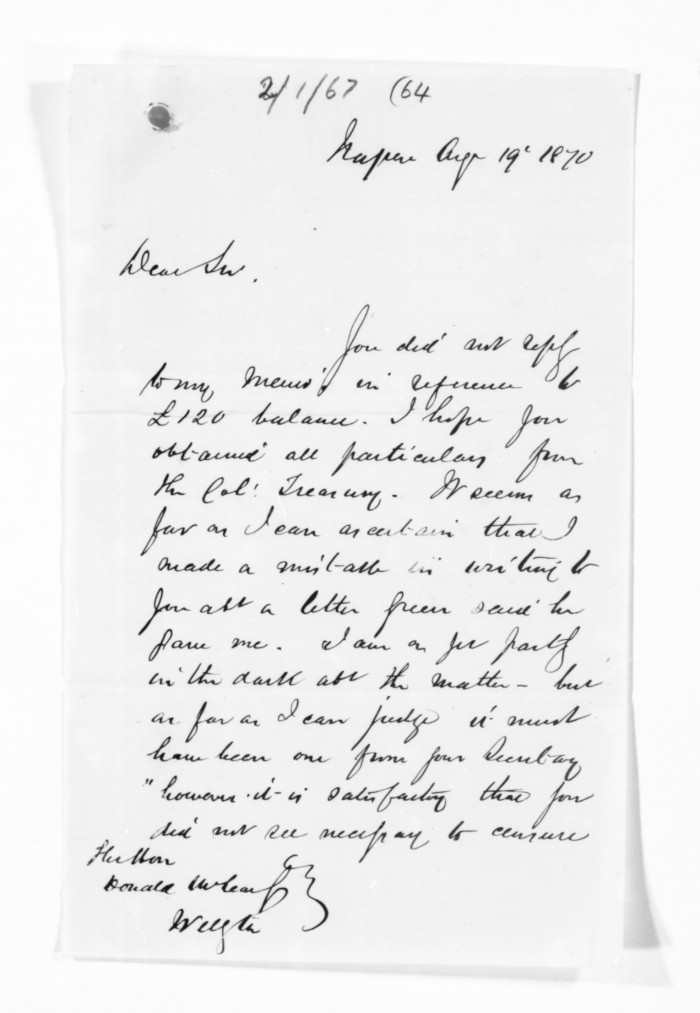 2/1/67 (64
Napier Augt 19t 1870
Dear Sir,
You did not reply
to my memo, in reference to
£120 balance. I hope you
obtained all particulars from
the Col'. Treasury. It seems as
far as I can ascertain that I
made a mistake in writing to
you abt a letter Green said he
gave me. I am as yet partly
in the dark abt the matter - but
as far as I can judge it must
have been one from your Secretary
" however it is satisfactory that you
did not see necessary to censure
The Hon
Donald McLean
Wellgtn